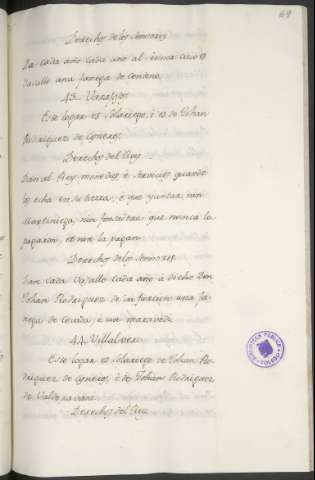 69
Derechos de los Senores
Da cada año cada uno al
vasallo una fanega de centeno.
43. 
Este logar es Solariego, é es de Johan
Rodriguez de Cisneros.
Derechos del Rey
Dan al Rey, monedas, é servicios quando
los echa en su tierra, é que yantar, nin
martiniega, nin fonsadera que nunca la
pagaron, et nin la pagan
Derechos de los Senores
Dan cada vasallo cada año à dicho Don
Johan Rodriguez de infurcion una fa-
nega de cevada, é un maravedi.
44. Villalvera
Este logar es solariego de Johan Ro-
driguez de Cisneros, é de Johan Rodriguez
de
Derechos del Rey
BIBLIOTECA PUBLICA
TOLEDO